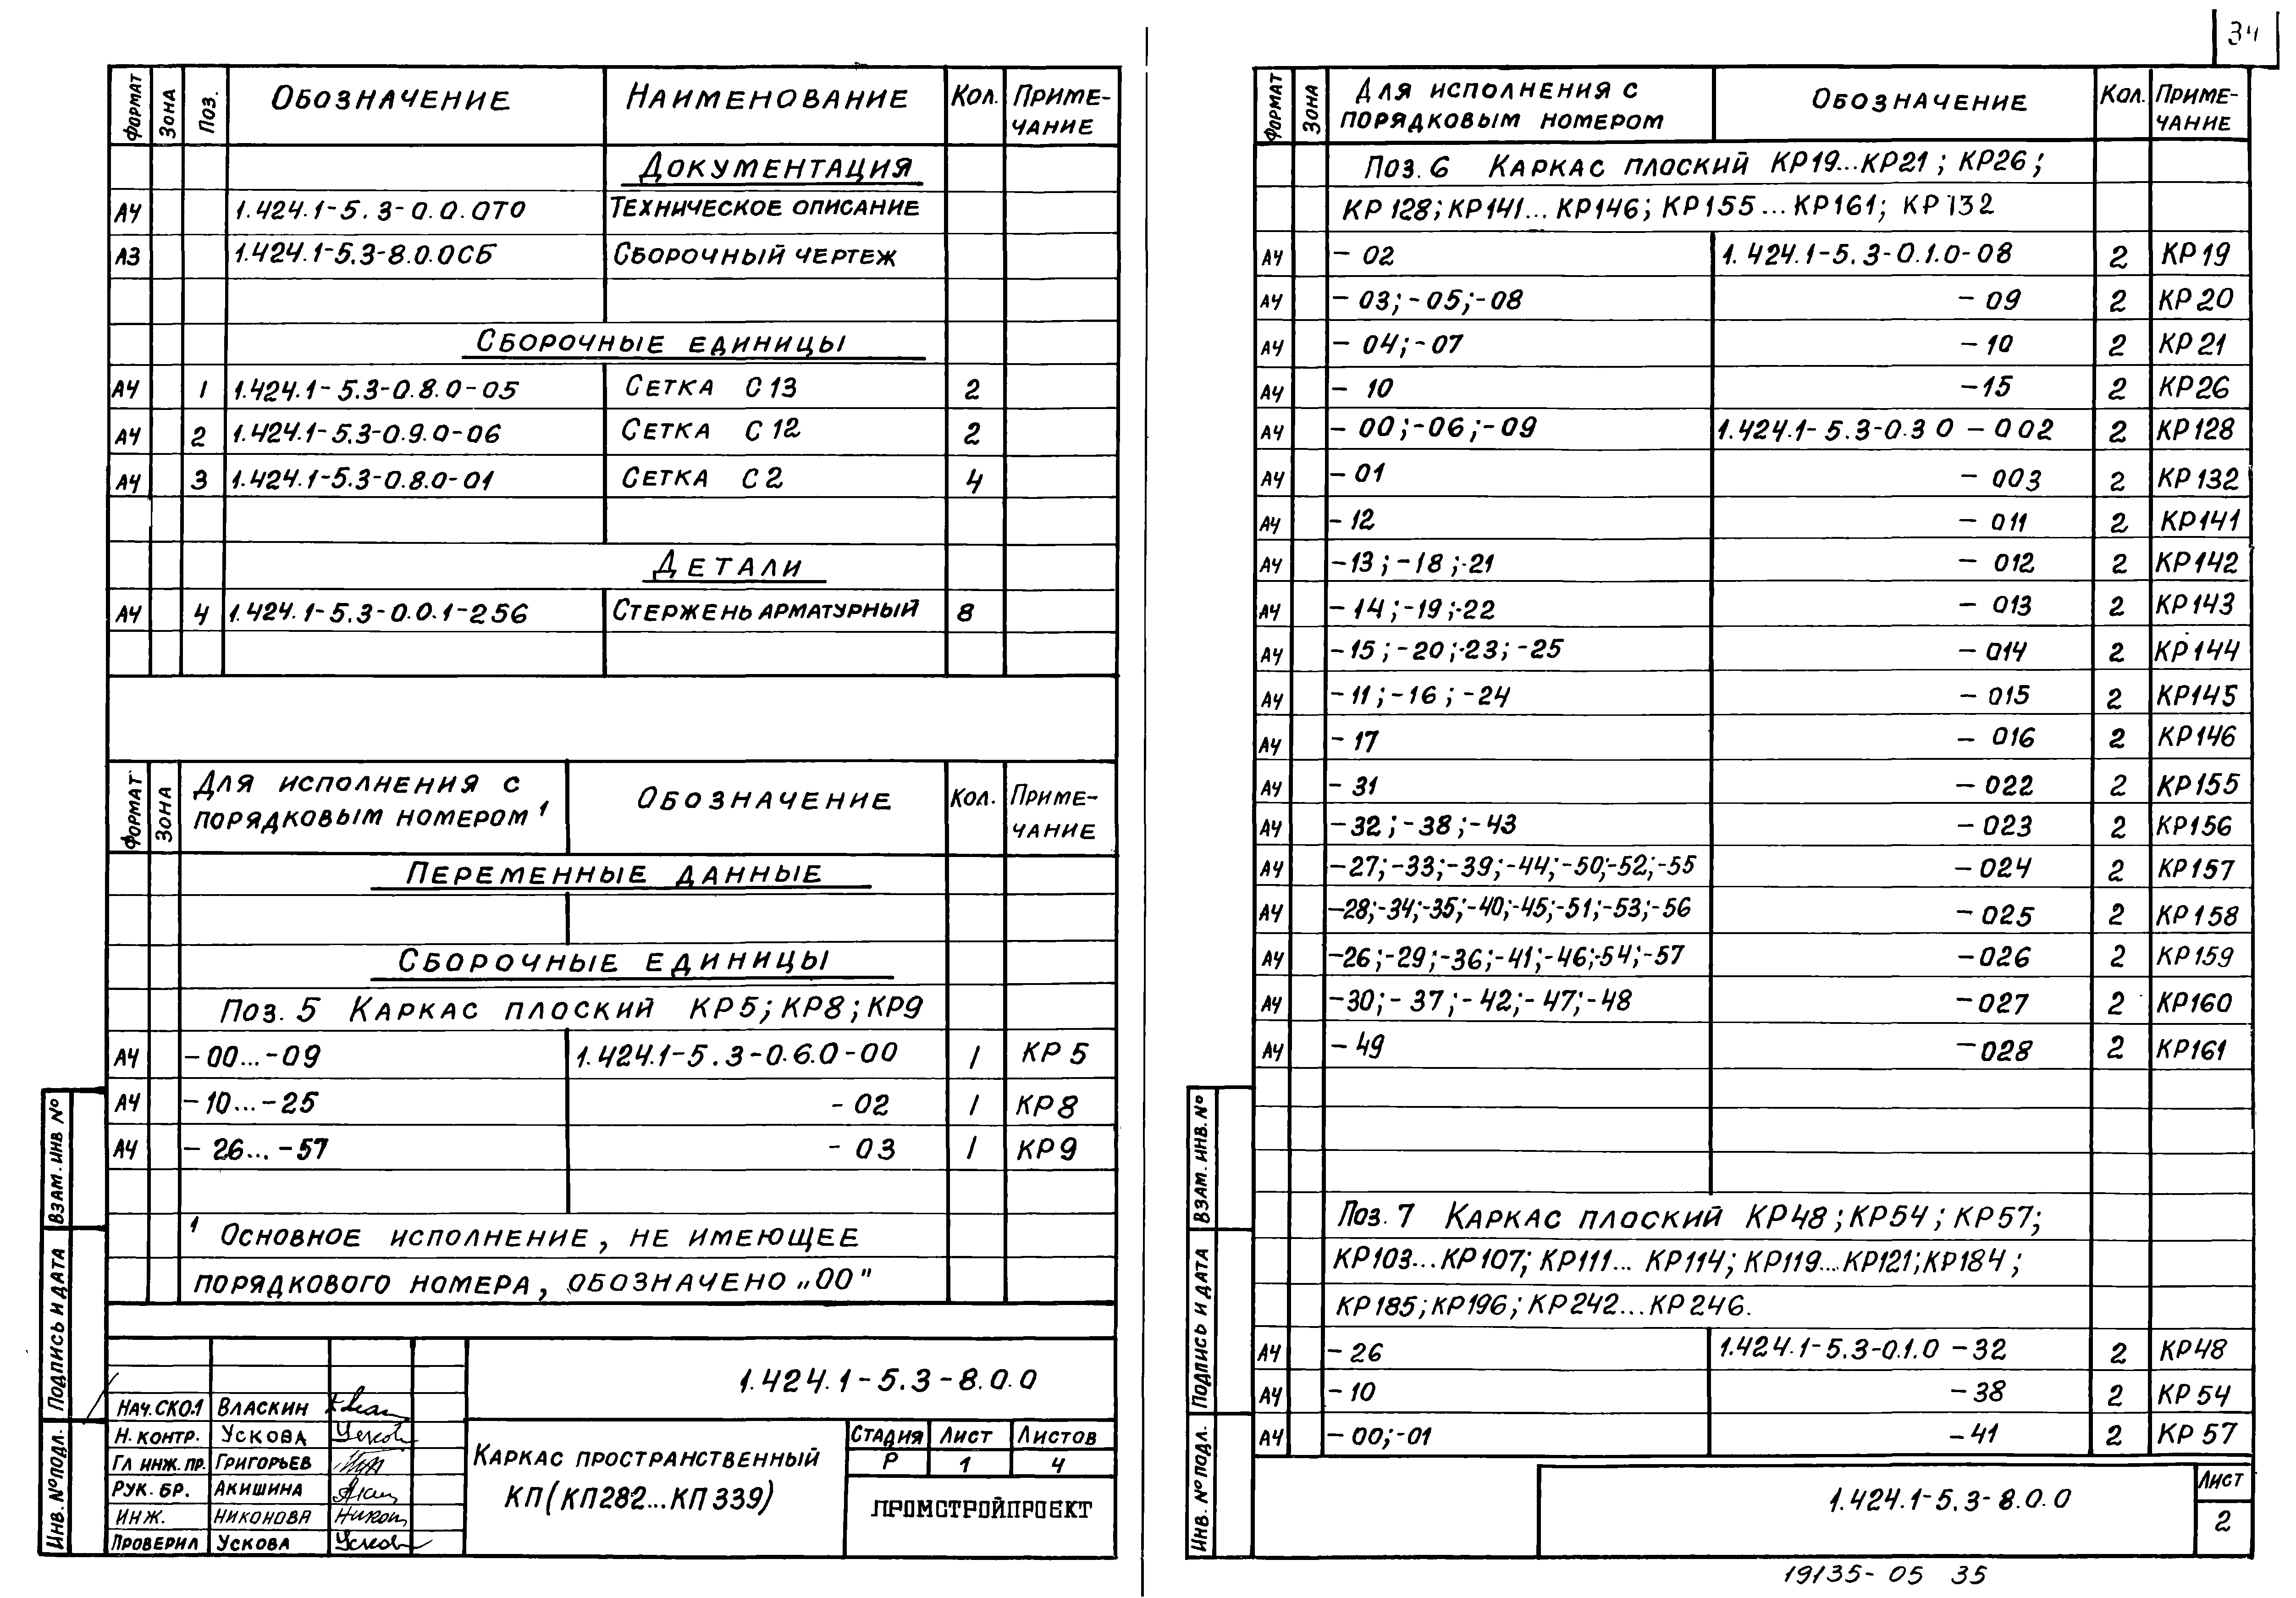 34
ФОРМАТ ЗОНА ПОЗ. ОБОЗНАЧЕНИЕ НАИМЕНОВАНИЕ КОЛ. ПРИМЕ-
ЧАНИЕ
ДОКУМЕНТАЦИЯ
А4 1.424.1-5.3-0.0.0ТО ТЕХНИЧЕСКОЕ ОПИСАНИЕ
А3 1.424.1-5.3-8.0.0СБ СБОРОЧНЫЙ ЧЕРТЕЖ
СБОРОЧНЫЕ ЕДИНИЦЫ
А4 1 1.424.1-5.3-0.8.0-05 СЕТКА С13 2
А4 2 1.424.1-5.3-0.9.0-06 СЕТКА С12 2
А4 3 1.424.1-5.3-0.8.0-01 СЕТКА С2 4
ДЕТАЛИ
А4 4 1.424.1-5.3-0.0.1-256 СТЕРЖЕНЬ АРМАТУРНЫЙ 8
ФОРМАТ ЗОНА ДЛЯ ИСПОЛНЕНИЯ С ОБОЗНАЧЕНИЕ КОЛ. ПРИМЕ-
ПОРЯДКОВЫМ НОМЕРОМ 1 ЧАНИЕ
ПЕРЕМЕННЫЕ ДАННЫЕ
СБОРОЧНЫЕ ЕДИНИЦЫ
ПОЗ. 5 КАРКАС ПЛОСКИЙ КР5; КР8; КР9
А4 -00...-09 1.424.1-5.3-0.6.0-00 1 КР5
А4 -10...-25 -02 1 КР8
А4 -26...-57 -03 1 КР9
1 ОСНОВНОЕ ИСПОЛНЕНИЕ, НЕ ИМЕЮЩЕЕ
ПОРЯДКОВОГО НОМЕРА, ОБОЗНАЧЕНО „00"
ВЗАМ. ИНВ №
ПОДПИСЬ И ДАТА
ИНВ. № ПОДЛ.
1.424.1-5.3-8.0.0
НАЧ. СКО1 ВЛАСКИН
Н. КОНТР. УСКОВА
ГЛ ИНЖ. ПР. ГРИГОРЬЕВ
РУК. БР. АКИШИНА
ИНЖ. НИКОНОВА
ПРОВЕРИЛ УСКОВА
КАРКАС ПРОСТРАНСТВЕННЫЙ
КП(КП282...КП339)
СТАДИЯ ЛИСТ ЛИСТОВ
Р 1 4
ПРОМСТРОЙПРОЕКТ
ФОРМАТ ЗОНА ДЛЯ ИСПОЛНЕНИЯ С ОБОЗНАЧЕНИЕ КОЛ. ПРИМЕ-
ПОРЯДКОВЫМ НОМЕРОМ ЧАНИЕ
ПОЗ. 6 КАРКАС ПЛОСКИЙ КР19...КР21; КР26;
КР128; КР141...КР146; КР155...КР161; КР132
А4 -02 1.424.1-5.3-0.1.0-08 2 КР19
А4 -03;-05;-08 -09 2 КР20
А4 -04;-07 -10 2 КР21
А4 -10 -15 2 КР26
А4 -00;-06;-09 1.424.1-5.3-0.3 0-002 2 КР128
А4 -01 -003 2 КР132
А4 -12 -011 2 КР141
А4 -13;-18;-21 -012 2 КР142
А4 -14;-19;-22 -013 2 КР143
А4 -15;-20;-23;-25 -014 2 КР144
А4 -11;-16;-24 -015 2 КР145
А4 -17 -016 2 КР146
А4 -31 -022 2 КР155
А4 -32;-38;-43 -023 2 КР156
А4 -27;-33;-39;-44;-50;-52;-55 -024 2 КР157
А4 -28;-34;-35;-40;-45;-51;-53;-56 -025 2 КР158
А4 -26;-29;-36;-41;-46;-54;-57 -026 2 КР159
А4 -30;-37;-42;-47;-48 -027 2 КР160
А4 -49 -028 2 КР161
ПОЗ. 7 КАРКАС ПЛОСКИЙ КР48; КР54; КР57;
КР103...КР107; КР111...КР114; КР119...КР121; КР184;
КР185; КР196; КР242...КР246.
А4 -26 1.424.1-5.3-0.1.0-32 2 КР48
А4 -10 -38 2 КР54
А4 -00;-01 -41 2 КР57
ВЗАМ. ИНВ. №
ПОДПИСЬ И ДАТА
ИНВ. № ПОДЛ.
1.424.1-5.3-8.0.0
ЛИСТ
2
19135-05 35